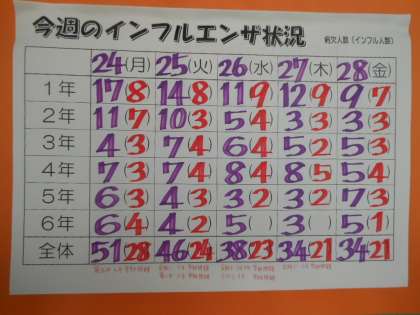 今週のインフルエンザ状況 病欠人数(インフル人数)
24(月) 25(火) 26(水) 27(木) 28(金)
1年 17(8 14(8 11(9 12(9 9(7)
2年 11(7 10(3 5(4 3(3 3(3)
3年 4(3 7(4 6(4 5(2 5(3)
4年 7(3 7(4 8(4 8(5 5(4)
5年 6(3 4(3 3(2 3(2 7(3)
6年 6(4 4(2 5( ) 3( ) 5(1)
全体 51(28 46(24 38(23 34(21 34(21